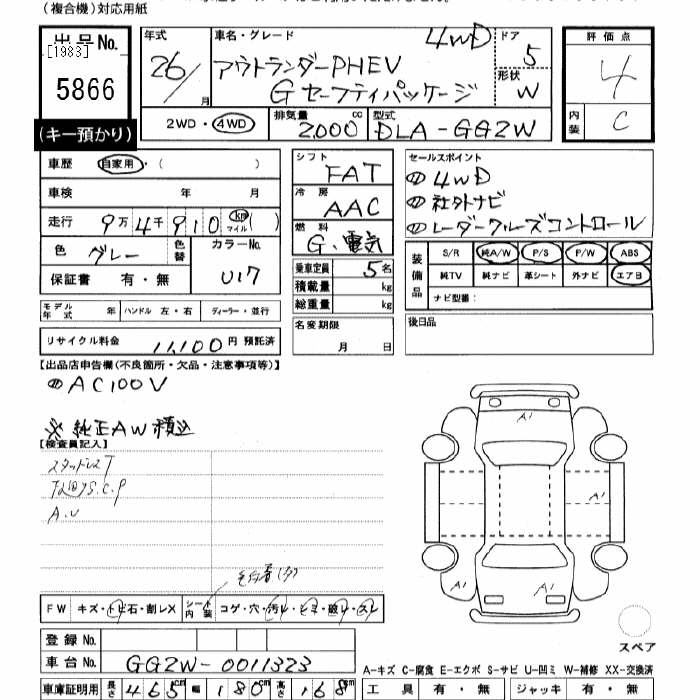 (複合機)対応用紙
出品No. [1983] 5866
(キー預かり)
年式 26/ 月
車名・グレード 4WD
アウトランダーPHEV
Gセーフティパッケージ
ドア 5
形状 W
2WD・4WD 排気量 2000 cc 型式 DLA-GG2W
評価点 4
内装 C
車歴 自家用・( )
車検 年 月
走行 9万4千910 km マイル ( )
色 グレー 色替 カラーNo. U17
保証書 有・無
モデル年式 年 ハンドル 左・右 ディーラー・並行
リサイクル料金 11,100円 預託済
シフト FAT
冷房 AAC
燃料 G・電気
乗車定員 5名
積載量 kg
総重量 kg
名変期限 月 日
セールスポイント
4WD
社外ナビ
レーダークルーズコントロール
装備品 S/R 純A/W P/S P/W ABS
純TV 純ナビ 革シート 外ナビ エアB
ナビ型番:
後日品
【出品店申告欄(不良箇所・欠品・注意事項等)】
AC100V
※純正AW積込
【検査員記入】
スタッドレスT
S.C.P
A.U
FW キズ・トビ石・割レX シート内装 コゲ・穴・汚レ・シミ・破レ・スレ
登録No.
車台No. GG2W-0011323
車庫証明用 長さ 465cm 幅 180cm 高さ 168cm
A1
A1
A1
A1
スペア
A-キズ C-腐食 E-エクボ S-サビ U-凹ミ W-補修 XX-交換済
工具 有・無 ジャッキ 有・無